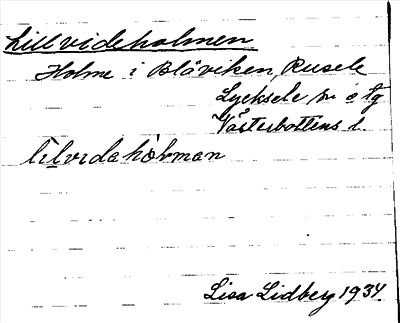 Lillvideholmen
Holme i Blåviken, Rusele
Lycksele sn o tg
Västerbottens l.
lilvidahòlman
Lisa Lidberg 1934